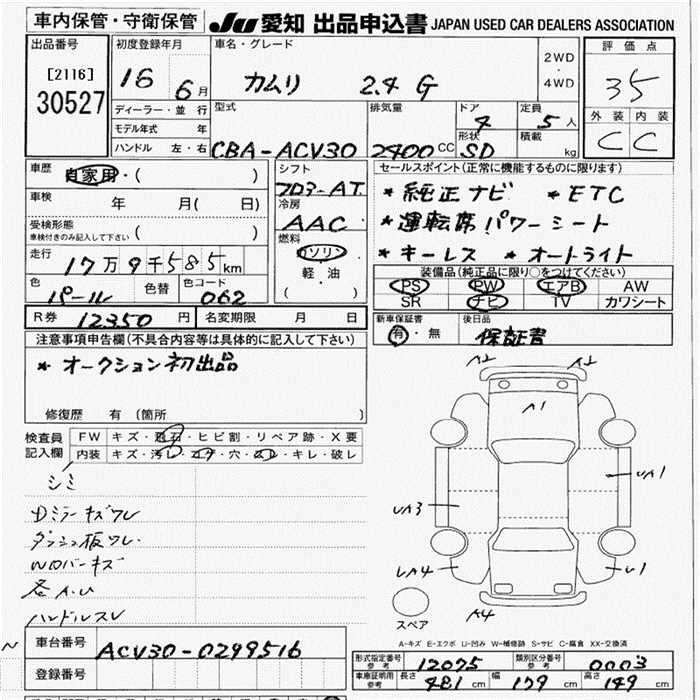 車内保管・守衛保管 JU 愛知 出品申込書 JAPAN USED CAR DEALERS ASSOCIATION
出品番号 初度登録年月 車名・グレード 2WD ・ 4WD 評価点
[2116] 16 6月 カムリ 2.4 G 35
30527 ディーラー・並行 型式 排気量 ドア 4 定員 5人 外装 内装
モデル年式 年 形状 積載 C C
ハンドル 左・右 CBA-ACV30 2400CC SD kg
車歴 自家用・( ) シフト セールスポイント(正常に機能するものに限ります)
フロアーAT
車検 年 月( 日) 冷房 *純正ナビ *ETC
AAC
受検形態 *運転席パワーシート
車検付きのみ記入して下さい ( ) 燃料
走行 17万9千585km ガソリン *キーレス *オートライト
軽・油
色 パール 色替 色コード 062 ( ) 装備品(純正品に限り○をつけてください)
PS PW エアB AW
SR ナビ TV カワシート
R券 12350円 名変期限 月 日 新車保証書 後日品
注意事項申告欄(不具合内容等は具体的に記入して下さい) 有・無 保証書
*オークション初出品
修復歴 有 (箇所 )
検査員 記入欄 FW キズ・飛石・ヒビ割・リペア跡・X要
内装 キズ・汚レ・コゲ・穴・スレ・キレ・破レ
シミ
Dミラーキズワレ
ダッシュ板ワレ
WDバーキズ
各A.U
ハンドルスレ
A2 A2
A1
UA1
UA3
UA4 U1
A4
スペア
A-キズ E-エクボ U-凹み W-補修跡 S-サビ C-腐食 XX-交換済
車台番号 ACV30-0299516
登録番号
形式指定番号 参考 12075 類別区分番号 参考 0003
車庫証明用 参考 長さ 481cm 幅 179cm 高さ 149cm